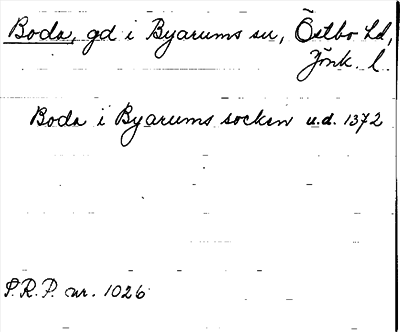 Boda, gd i Byarums sn, Östbo hd,
Jönk. l.
Boda i Byarums socken u.d. 1372
S.R.P. nr. 1026